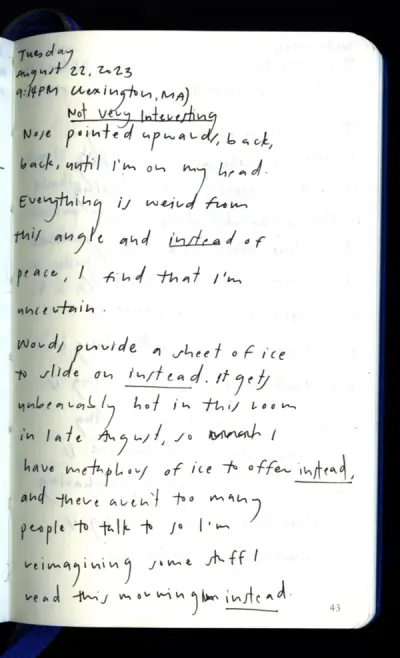 Tuesday
August 22, 2023
9:14PM (Lexington, MA)
Not Very Interesting
Nose pointed upwards, back,
back, until I'm on my head.
Everything is weird from
this angle and instead of
peace, I find that I'm
uncertain.
Words provide a sheet of ice
to slide on instead. It gets
unbearably hot in this room
in late August, so I
have metaphors of ice to offer instead,
and there aren't too many
people to talk to so I'm
reimagining some stuff I
read this morning instead.
43